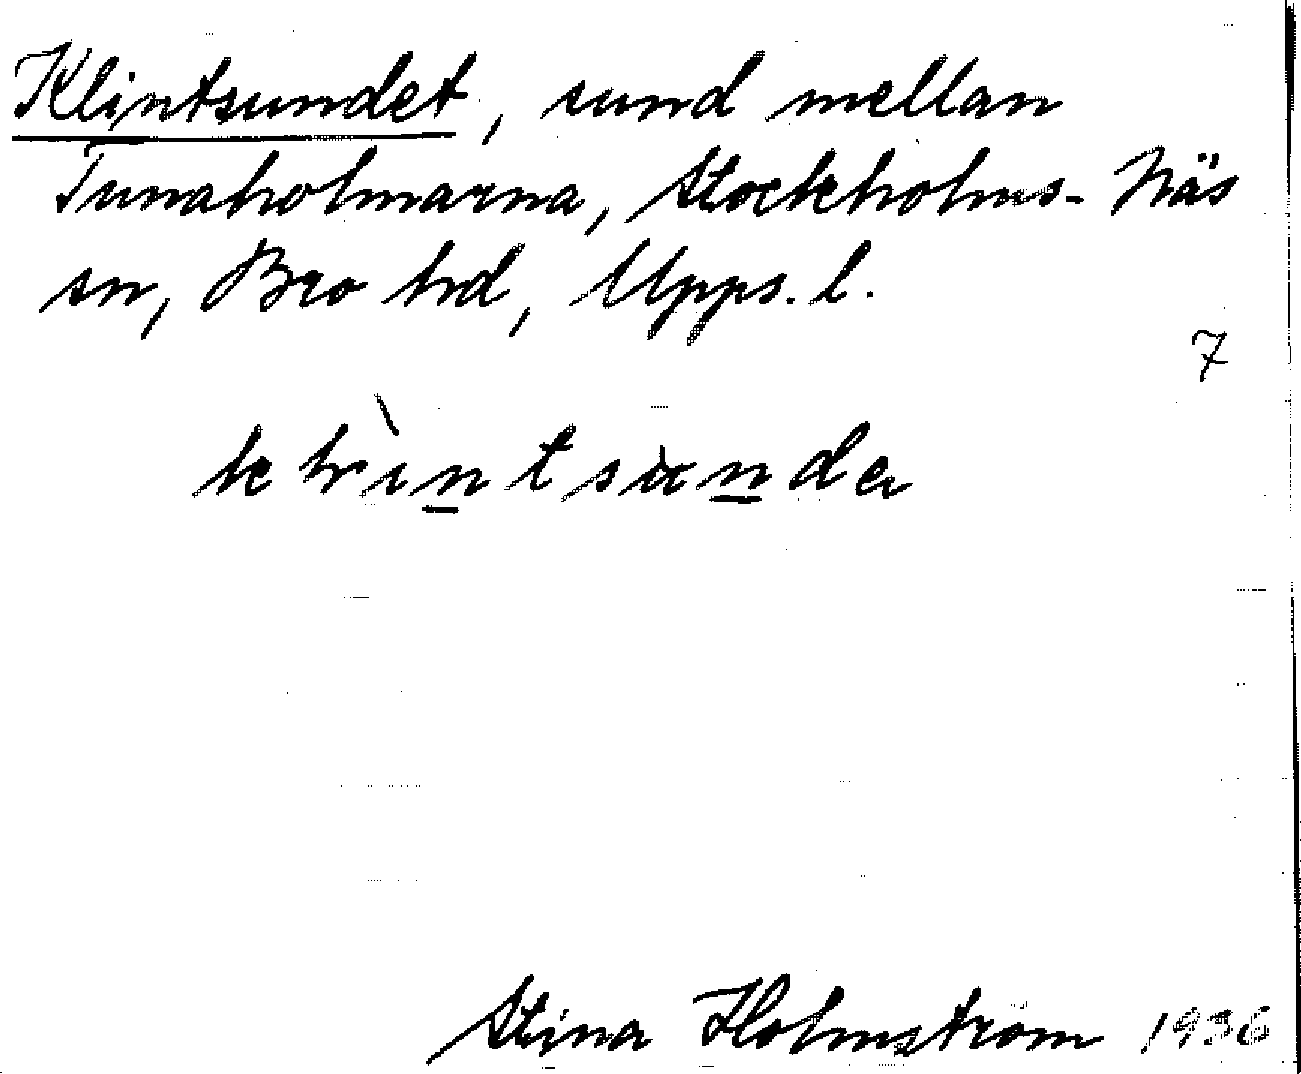 Klintsundet, sund mellan
Tunaholmarna, Stockholms-Näs
sn, Bro hd, Upps. l.
7
Stina Holmström 1936